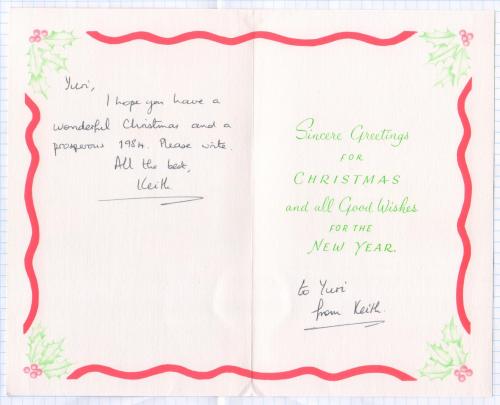 Yuri,
I hope you have a
wonderful Christmas and a
prosperous 1984. Please write.
All the best,
Keith
Sincere Greetings
FOR
CHRISTMAS
and all Good Wishes
FOR THE
NEW YEAR.
to Yuri
from Keith.